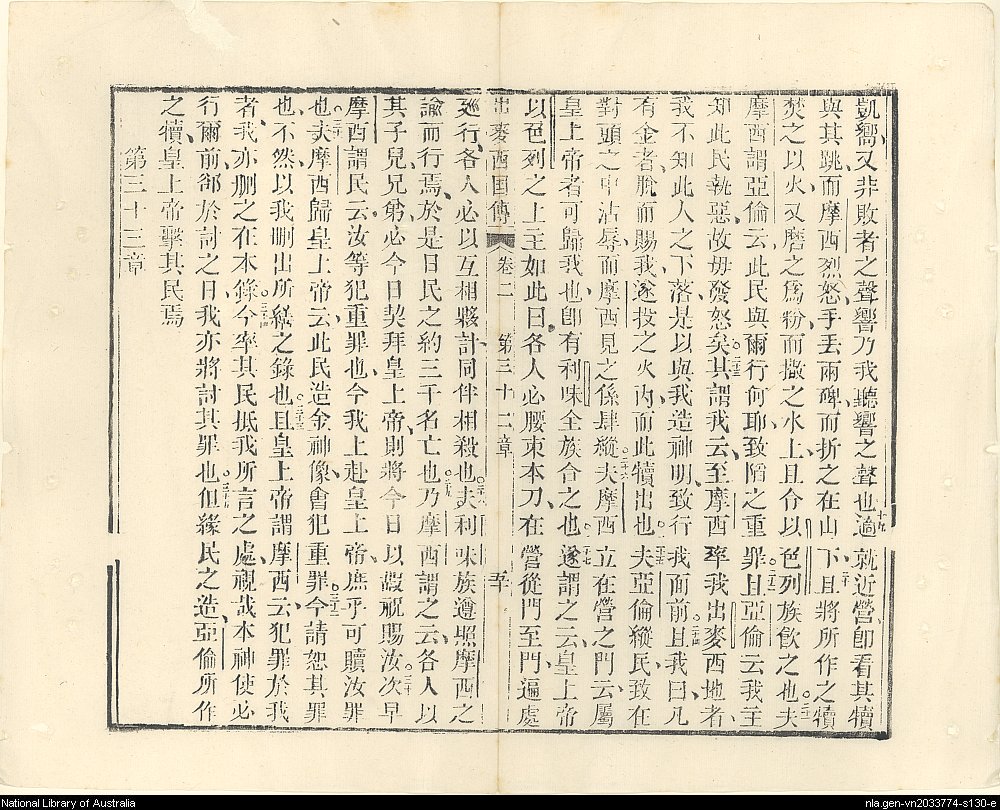 凱嚮又非敗者之聲響乃我聽響之聲也適十九就近營卽看其犢
與其跳而摩西烈怒手丟兩碑而折之在山下二十且將所作之犢
焚之以火又磨之爲粉而撒之水上且令以色列族飲之也夫二十一
摩西謂亞倫云此民與爾行何耶致陷之重罪二十二且亞倫云我主
知此民執惡故毋發怒矣二十三其謂我云至摩西率我出麥西地者
我不知此人之下落是以與我造神明致行我面前二十四且我曰凡
有金者脫而賜我遂投之火內而此犢出也二十五夫亞倫縱民致在
對頭之中沾辱而摩西見之係肆縱二十六夫摩西立在營之門云屬
皇上帝者可歸我也卽有利味全族合之也二十七遂謂之云皇上帝
以色列之上主如此曰各人必腰束本刀在營從門至門遍處
出麥西国傳 卷二 第三十二章 五十
廵行各人必以互相夥計同伴相殺也二十八夫利味族遵照摩西之
諭而行焉於是日民之約三千名亡也二十九乃摩西謂之云各人以
其子兒兄第必今日契拜皇上帝則將今日以嘏祝賜汝三十次早
摩西謂民云汝等犯重罪也今我上赴皇上帝庶乎可贖汝罪
也三十一夫摩西歸皇上帝云此民造金神像會犯重罪三十二今請恕其罪
也不然以我刪出所繕之錄也三十三且皇上帝謂摩西云犯罪於我
者我亦刪之在本錄三十四今率其民抵我所言之處視哉本神使必
行爾前郤於討之日我亦將討其罪也三十五但緣民之造亞倫所作
之犢皇上帝擊其民焉
第三十三章
National Library of Australia
nla.gen-vn2033774-s130-e